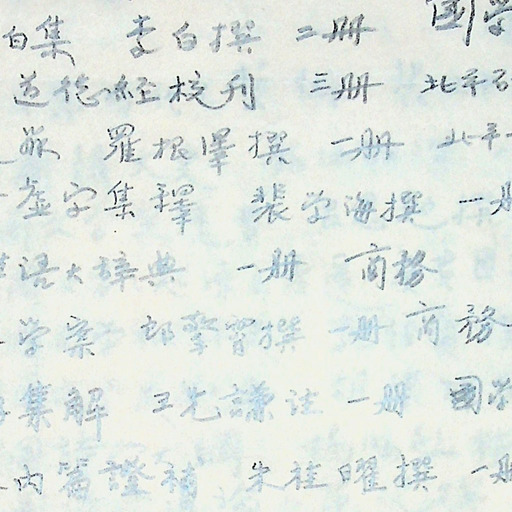 白集 李白撰 二册 國学
道德經校刊 三册 北平
羅根澤撰 一册 北平
虚字集釋 裴学海撰 一册
語大辞典 一册 商務
学案 撰 一册 商務
集解 王先謙注 一册 國学
内篇證補 朱桂曜撰 一册